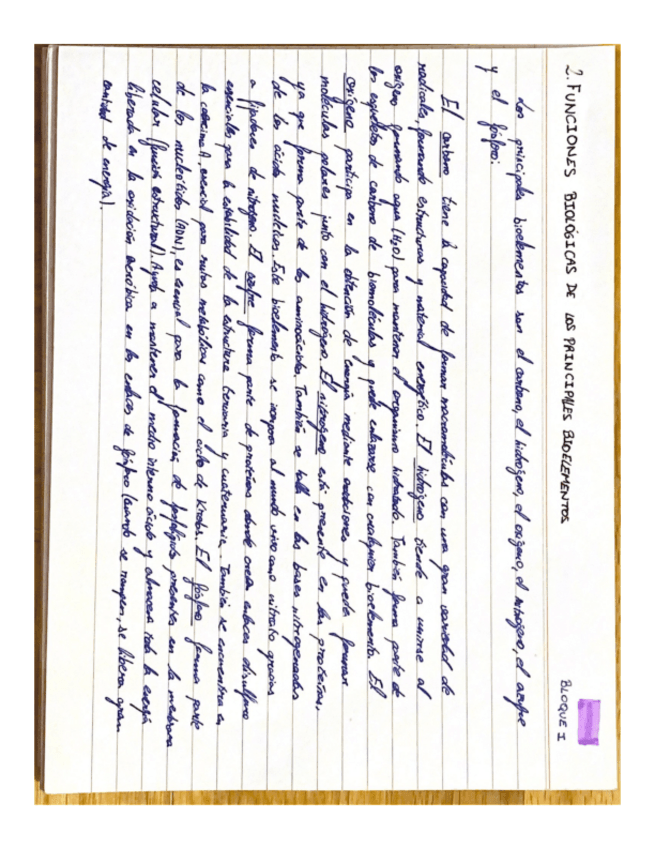 BLOQUE I
2. FUNCIONES BIOLÓGICAS DE LOS PRINCIPALES BIOELEMENTOS
Los principales bioelementos son el carbono, el hidrógeno, el oxígeno, el nitrógeno, el azufre
y el fósforo:
El carbono tiene la capacidad de formar macromoléculas con una gran variedad de
radicales, formando estructuras y material energético. El hidrógeno tiende a unirse al
oxígeno formando agua (H₂O) para mantener el organismo hidratado. También forma parte de
los esqueletos de carbono de biomoléculas y puede enlazarse con cualquier bioelemento. El
oxígeno participa en la obtención de energía mediante oxidaciones y puede formar
moléculas polares junto con el hidrógeno. El nitrógeno está presente en las proteínas,
ya que forma parte de los aminoácidos. También se halla en las bases nitrogenadas
de los ácidos nucleicos. Este bioelemento se incorpora al mundo vivo como nitrato gracias
a fijadores de nitrógeno. El azufre forma parte de proteínas donde crea enlaces disulfuro
esenciales para la estabilidad de la estructura terciaria y cuaternaria. También se encuentra en
la coenzima A, esencial para rutas metabólicas como el ciclo de Krebs. El fósforo forma parte
de los nucleótidos (ADN), es esencial para la formación de fosfolípidos presentes en la membrana
celular (función estructural). Ayuda a mantener el medio interno ácido y almacena toda la energía
liberada en la oxidación aeróbica en los enlaces de fósforo (cuando se rompen, se libera gran
cantidad de energía).